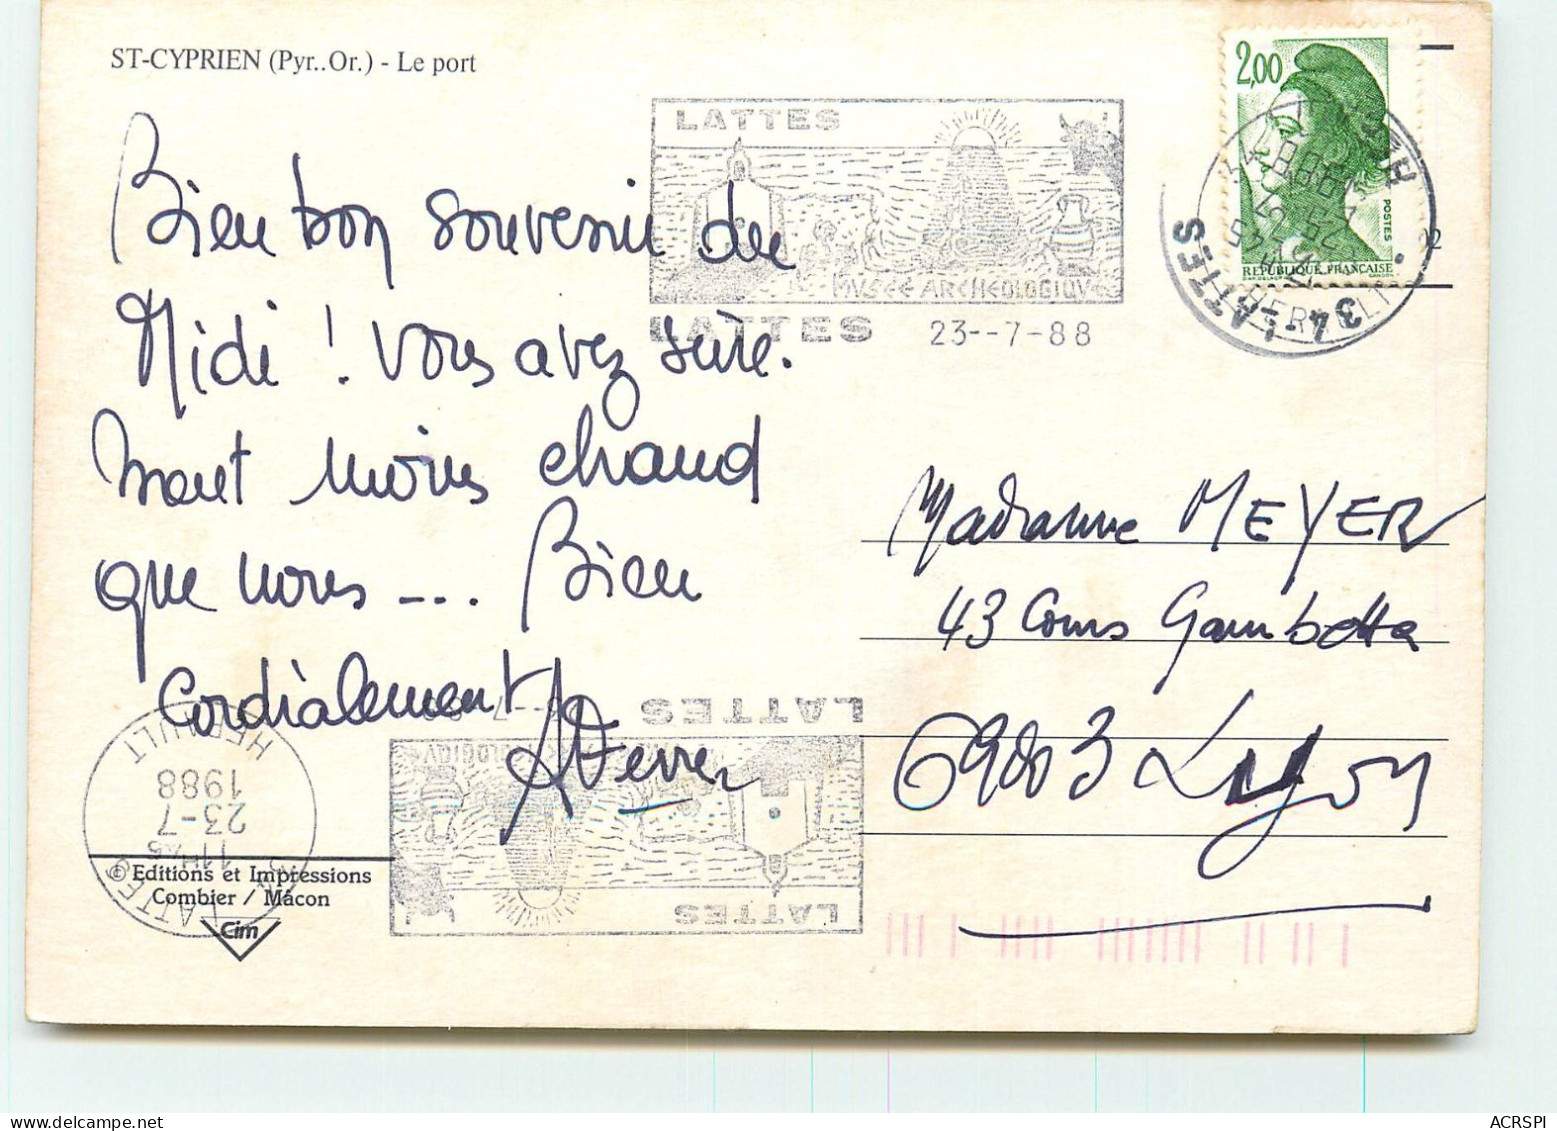 ST-CYPRIEN (Pyr..Or.) - Le port
Bien bon souvenir du
Midi ! Vous avez sûre.
ment moins chaud
que nous --.. Bien
Cordialement
2,00
POSTES
REPUBLIQUE FRANÇAISE
LATTES
MUSEE ARCHEOLOGIQUE
LATTES
23--7-88
34 - LATTES
HERAULT
Madame MEYER
43 Cours Gambetta
69003 Lyon
LATTES
LATTES
HERAULT
1988
23-7
© Editions et Impressions
Combier / Mâcon
Cim
ACRSPI